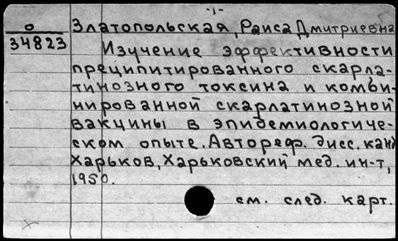 -1-
О Златопольская, Раиса Дмитриевна
34823 Изучение эффективности
преципитированного скарла-
тинозного токсина и комби-
нированной скарлатинозной
вакцины в эпидемиологиче-
ском опыте. Автореф. дисс. канд
Харьков, Харьковский мед. ин-т,
1950.
см. след. карт.